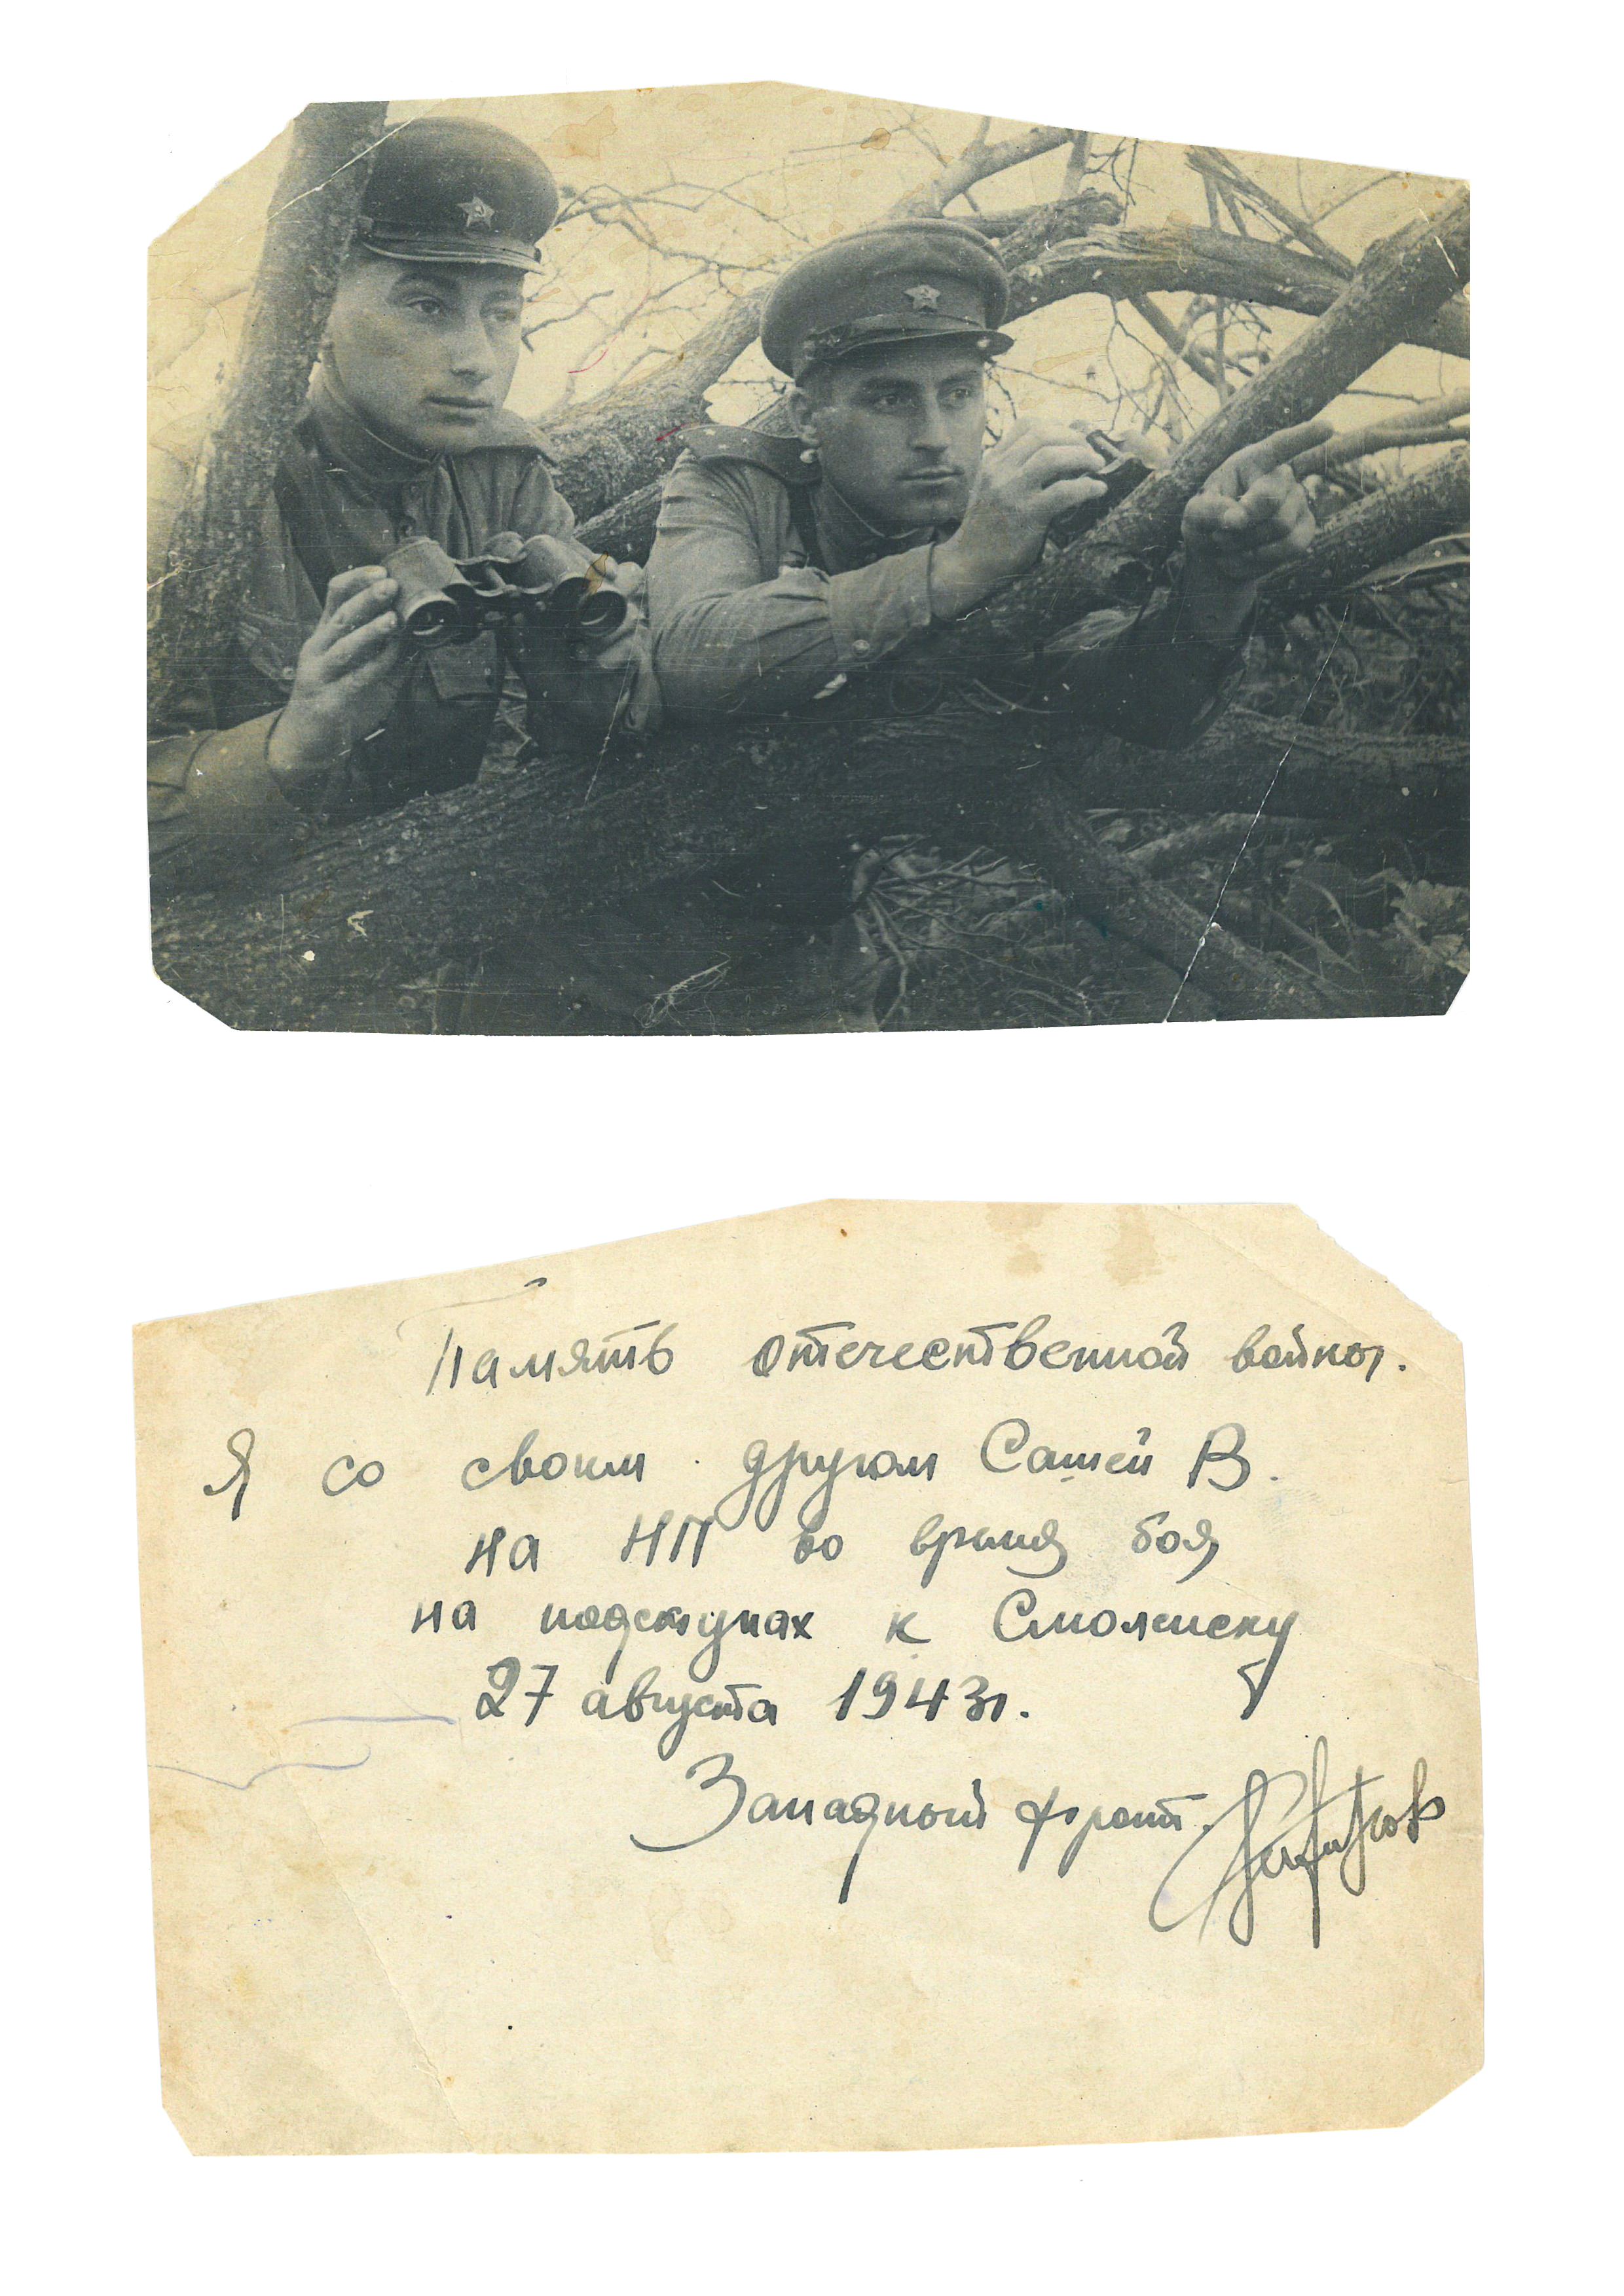 Память отечественной войны.
Я со своим другом Сашей В.
на НП во время боя
на подступах к Смоленску
27 августа 1943г.
Западный фронт.